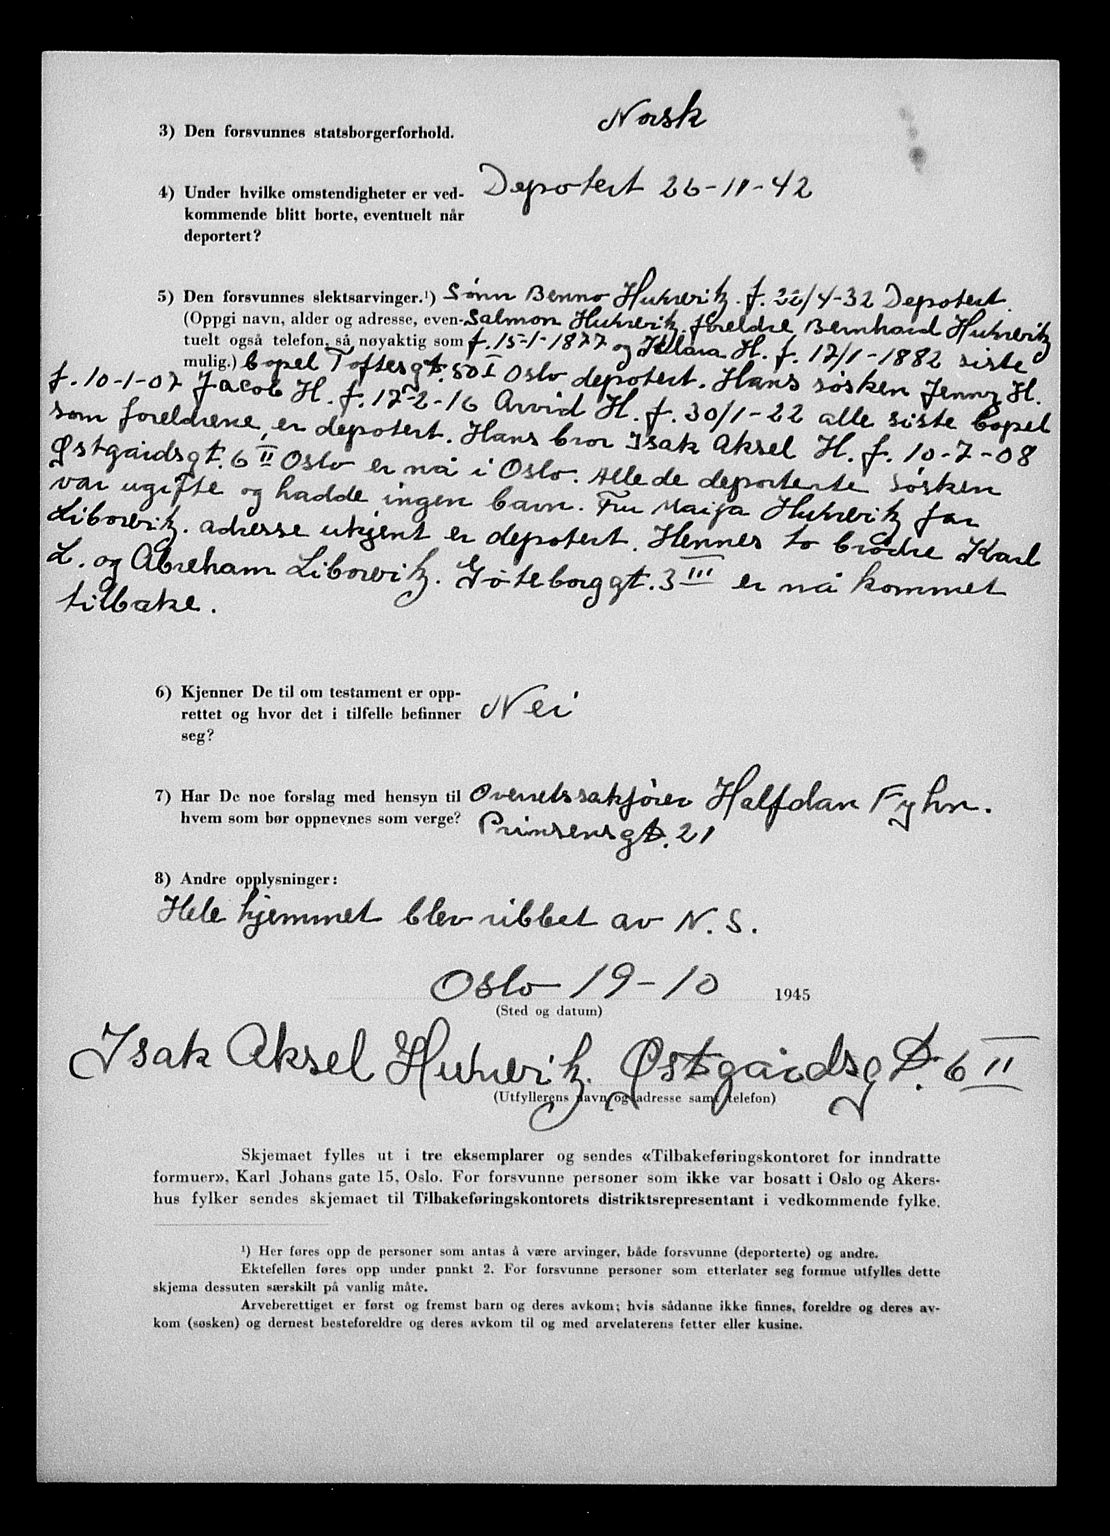 3) Den forsvunnes statsborgerforhold. Norsk
4) Under hvilke omstendigheter er ved-
kommende blitt borte, eventuelt når
deportert?
Depotert 26-11-42
5) Den forsvunnes slektsarvinger.¹) Sønn Benno Hurwitz. f. 22/4-32 Depotert.
(Oppgi navn, alder og adresse, even-
tuelt også telefon, så nøyaktig som
mulig.)
Salmon Hurwitz. foreldre Bernhard Hurwitz
f. 15-1-1877 og Klara H. f. 17/1-1882 siste
bopel Toftesgt. 50 I Oslo depotert. Hans søsken Jenny H.
f. 10-1-07 Jacob H. f. 17-2-16 Arvid H. f. 30/1-22 alle siste bopel
som foreldrene, er depotert. Hans bror Isak Aksel H. f. 10-7-08
Østgaardsgt. 6 II Oslo er nå i Oslo. Alle de deporterte søsken
var ugifte og hadde ingen barn. Fru Marja Hurwitz far
Liborwitz. adresse ukjent er depotert. Hennes to brødre Karl
L. og Abreham Liborwitz. Gøteborggt. 3 III er nå kommet
tilbake.
6) Kjenner De til om testament er opp-
rettet og hvor det i tilfelle befinner
seg?
Nei
7) Har De noe forslag med hensyn til
hvem som bør oppnevnes som verge?
Overretssakfører Halfdan Fyhn.
Prinsensgt. 21
8) Andre opplysninger:
Hele hjemmet blev ribbet av N. S.
Oslo 19-10 1945
(Sted og datum)
Isak Aksel Hurwitz. Østgaardsgt. 6 II
(Utfyllerens navn og adresse samt telefon)
Skjemaet fylles ut i tre eksemplarer og sendes «Tilbakeføringskontoret for inndratte
formuer», Karl Johans gate 15, Oslo. For forsvunne personer som ikke var bosatt i Oslo og Akers-
hus fylker sendes skjemaet til Tilbakeføringskontorets distriktsrepresentant i vedkommende fylke.
¹) Her føres opp de personer som antas å være arvinger, både forsvunne (deporterte) og andre.
Ektefellen føres opp under punkt 2. For forsvunne personer som etterlater seg formue utfylles dette
skjema dessuten særskilt på vanlig måte.
Arveberettiget er først og fremst barn og deres avkom; hvis sådanne ikke finnes, foreldre og deres av-
kom (søsken) og dernest besteforeldre og deres avkom til og med arvelaterens fetter eller kusine.